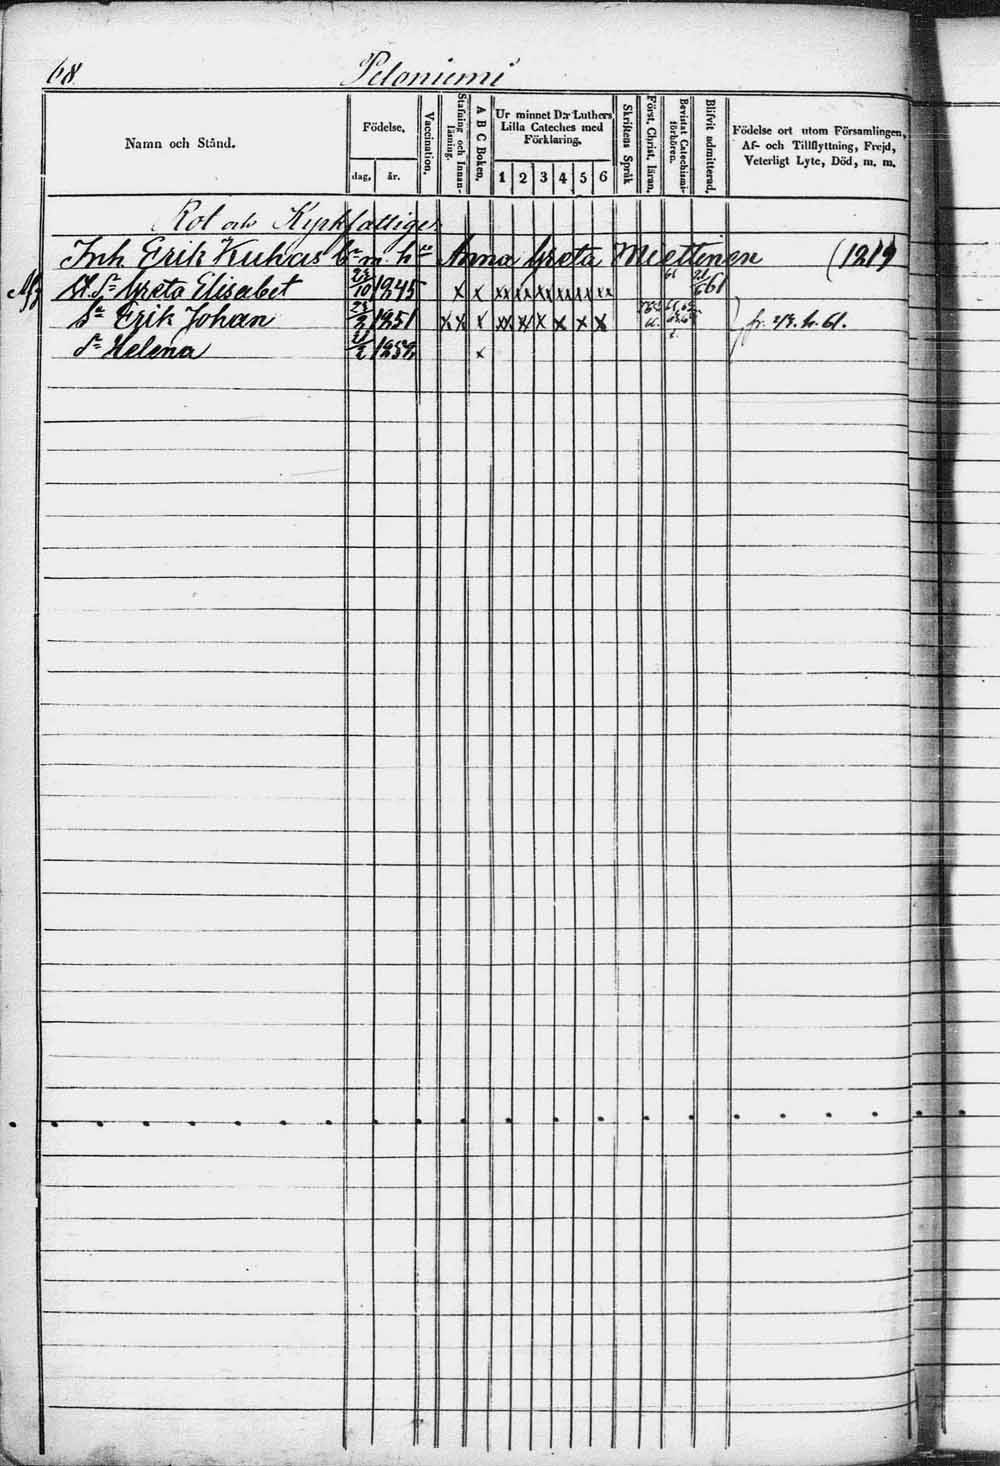 68. Peloniemi
Namn och Stånd.
Födelse,
dag, år.
Vaccination,
Stafning och Innan-läsning.
A B C Boken,
Ur minnet D:r Luthers Lilla Cateches med Förklaring,
1 2 3 4 5 6
Skriftens Språk
Först. Christ. läran,
Bevistat Catechismi-förhören.
Blifvit admitterad,
Födelse ort utom Församlingen, Af- och Tillflyttning, Frejd, Veterligt Lyte, Död, m. m.
Rot och Kyrkfattiga
Inh Erik Kuhas Anna Greta Miettinen
Greta Elisabet 1845 x x xx xx xx xx xx xx 61
Erik Johan 1851 xx x xx x x x x x
Helena x
fr. 61.